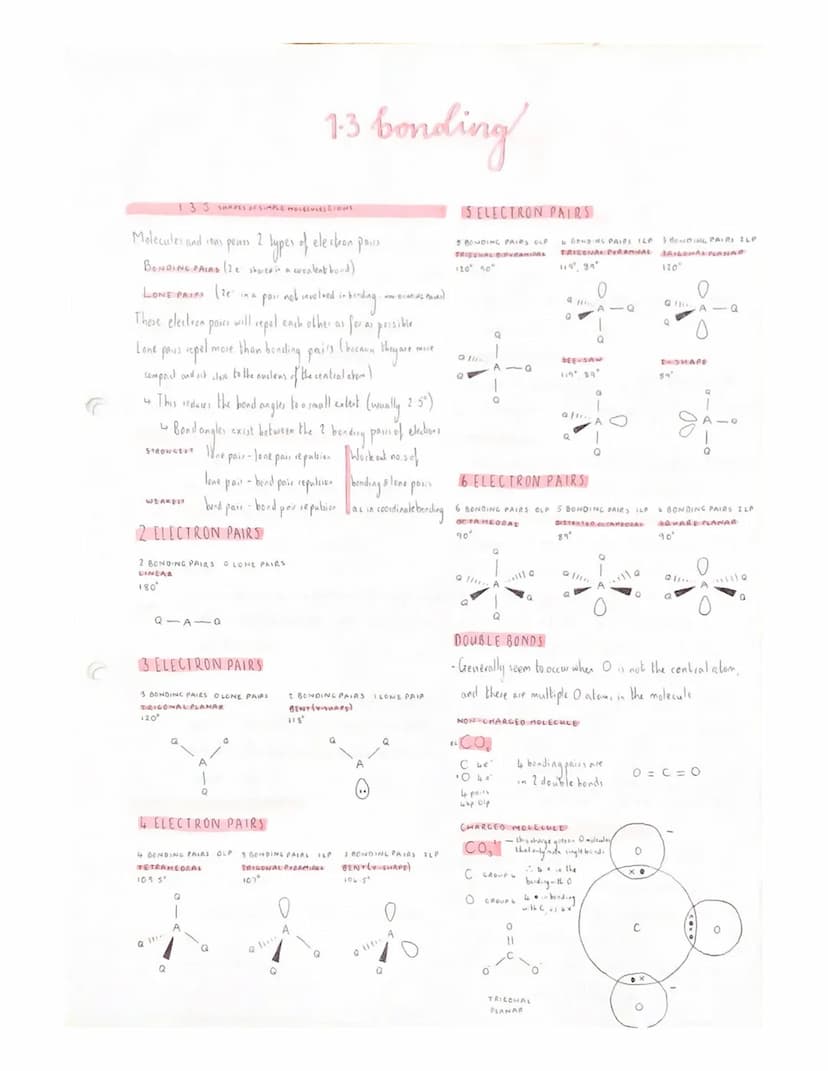 1.3 bonding
1.3.5 SHAPES OF SIMPLE MOLECULES & IONS
Molecules and ions possess 2 types of electron pairs
BONDING PAIRS (2e⁻ shared in a covalent bond)
LONE PAIRS (2e⁻ in a pair not involved in bonding, non-bonding pairs)
These electron pairs will repel each other as far as possible
Lone pairs repel more than bonding pairs (because they are more
compact and sit close to the nucleus of the central atom)
↳ This reduces the bond angles to a small extent (usually 2.5°)
↳ Bond angles exist between the 2 bonding pairs of electrons
STRONGEST lone pair - lone pair repulsion
lone pair - bond pair repulsion
WEAKEST bond pair - bond pair repulsion
Work out no.s of
bonding & lone pairs
as in coordinate bonding
2 ELECTRON PAIRS
2 BONDING PAIRS 0 LONE PAIRS
LINEAR
180°
Q — A — Q
3 ELECTRON PAIRS
3 BONDING PAIRS 0 LONE PAIRS
TRIGONAL PLANAR
120°
Q Q
A
Q
2 BONDING PAIRS 1 LONE PAIR
BENT (V-SHAPE)
118°
Q Q
A
4 ELECTRON PAIRS
4 BONDING PAIRS 0LP
TETRAHEDRAL
109.5°
Q
A
Q Q
Q
3 BONDING PAIRS 1LP
TRIGONAL PYRAMIDAL
107°
A
Q Q
Q
2 BONDING PAIRS 2LP
BENT (V-SHAPE)
104.5°
A
Q
Q
5 ELECTRON PAIRS
5 BONDING PAIRS 0LP
TRIGONAL BIPYRAMIDAL
120° 90°
Q
Q A — Q
Q
Q
4 BONDING PAIRS 1LP
TRIGONAL PYRAMIDAL
119°, 89°
Q A — Q
Q
Q
SEE-SAW
119° 89°
Q
Q A
Q
Q
3 BONDING PAIRS 2LP
TRIGONAL PLANAR
120°
Q A — Q
Q
T-SHAPE
89°
Q
A — Q
Q
6 ELECTRON PAIRS
6 BONDING PAIRS 0LP
OCTAHEDRAL
90°
Q
Q A Q
Q Q
Q
5 BONDING PAIRS 1LP
DISTORTED OCTAHEDRAL
89°
Q
Q A Q
Q Q
4 BONDING PAIRS 2LP
SQUARE PLANAR
90°
Q A Q
Q Q
DOUBLE BONDS
- Generally seem to occur when O is not the central atom,
and there are multiple O atoms in the molecule
NON-CHARGED MOLECULE
CO₂
C 4e⁻
O 4e⁻
4 pairs
4bp 0lp
4 bonding pairs are
in 2 double bonds
O = C = O
CHARGED MOLECULE
CO₃²⁻
C GROUP 4
O GROUP 6
bonding with O
with C
O
C
O⁻ O⁻
TRIGONAL
PLANAR
O
C
O
O